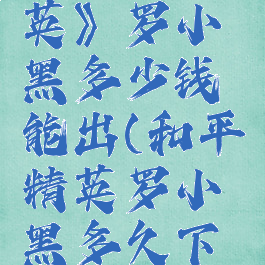 英》罗小
黑多少钱
能出(和平
精英罗小
黑多久下